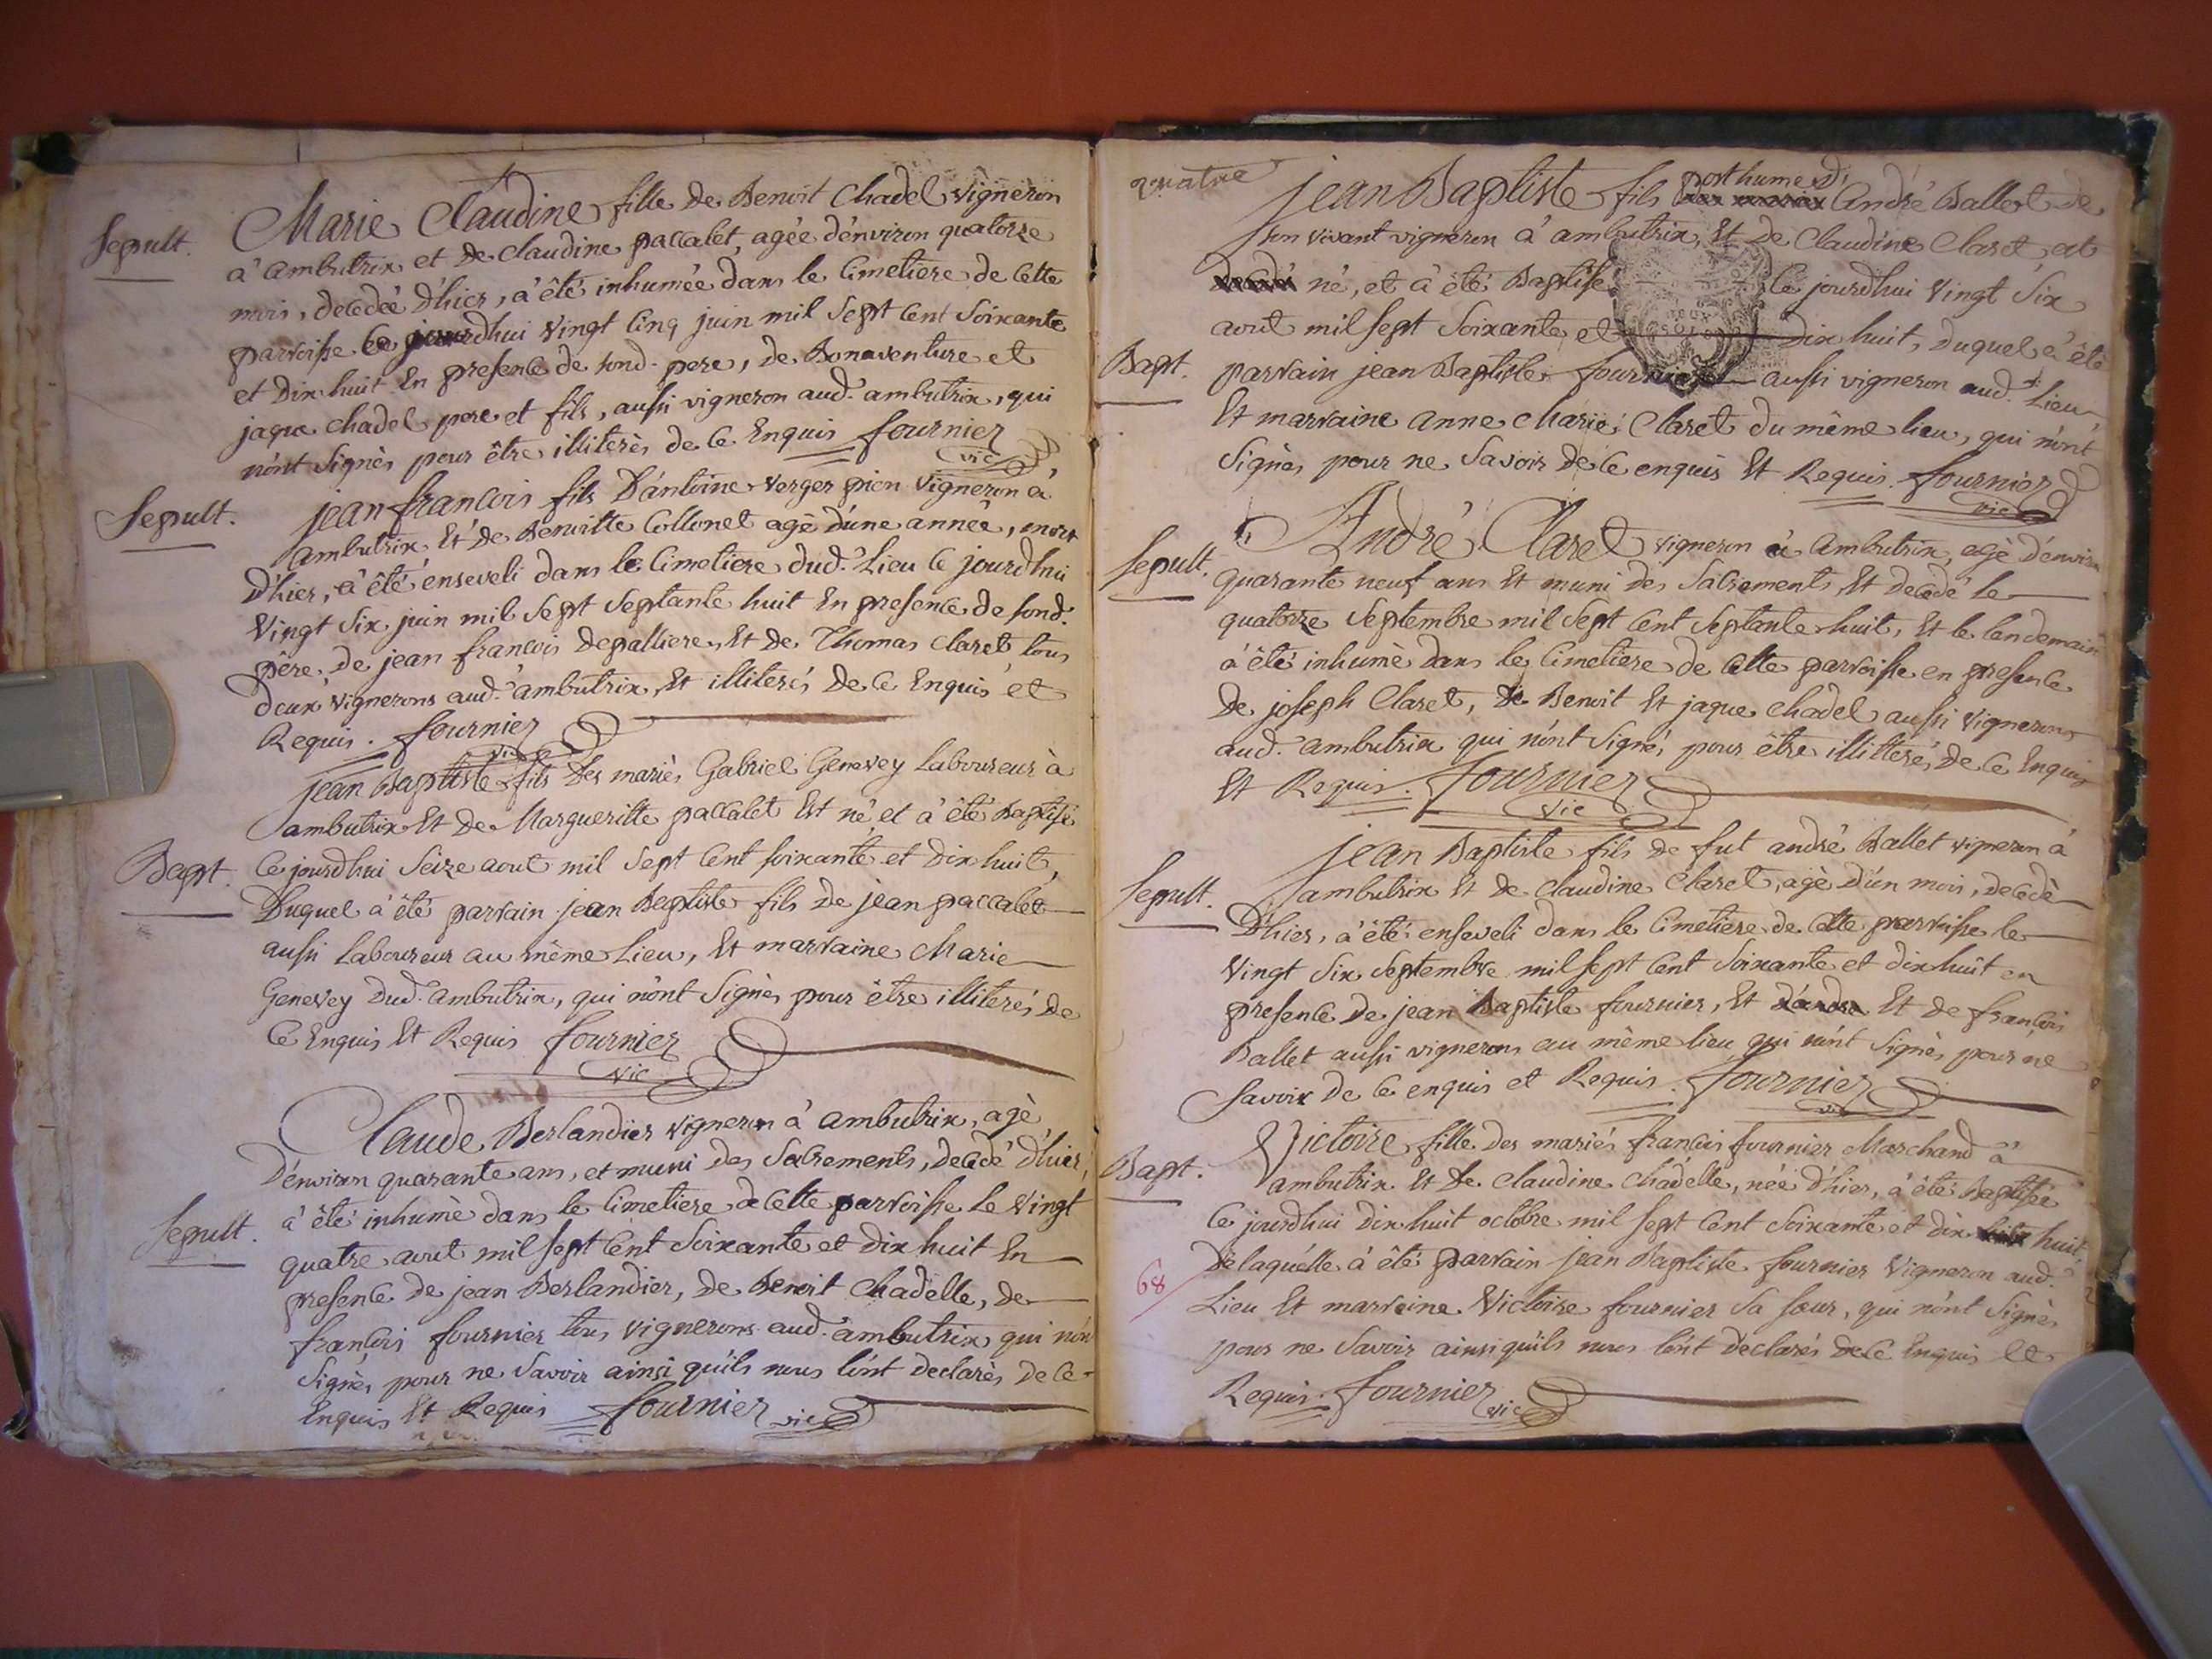 Sepult.
Marie Claudine fille de Benoit Chadel vigneron
à ambutrix et de Claudine paccalet, agée d'énviron quatorze
mois, decedée d'hier, à été inhumée dans le Cimetiere de Cette
parroisse Ce jourdhui vingt Cinq juin mil Sept Cent Soixante
et Dix huit En presence de sond. pere, de Bonaventure et
jaque Chadel pere et fils, aussi vigneron aud. ambutrix, qui
n'ont Signès pour être illiterès de Ce Enquis fournier
vic
Sepult.
jean françois fils D'antoine Verger pion vigneron à
ambutrix Et de Benoitte Collonet agè d'une année, mort
D'hier, à été enseveli dans le Cimetiere dud. Lieu Ce jourdhui
Vingt Six juin mil Sept Septante huit En presence de sond.
père, de jean françois depalliere, Et de Thomas Claret tous
deux vignerons aud. ambutrix, Et illiterés de Ce Enquis et
Requis. fournier
vic
jean Baptiste fils des mariès Gabriel Genevey Laboureur à
ambutrix Et de Margueritte paccalet Est né et à été Baptisé
Bapt.
Ce jourdhui Seize aout mil Sept Cent soixante et Dix huit,
Duquel à été parrain jean Baptiste fils de jean paccalet
aussi Laboureur au même Lieu, Et marraine Marie
Genevey Dud. ambutrix, qui n'ont Signès pour être illiterés de
Ce Enquis Et Requis fournier
vic
Claude Berlandier vigneron à ambutrix, agè
D'environ quarante ans, et muni des Sacrements, decedé d'hier,
Sepult.
à été inhumè dans le Cimetiere de Cette parroisse Le Vingt
quatre aout mil sept Cent Soixante et dix huit En
presence de jean Berlandier, de Benoit Chadelle, de
françois fournier tous vignerons aud. ambutrix qui n'on
Signès pour ne Savoir ainsi qu'ils nous l'ont declarès de Ce
Enquis Et Requis fournier vic
quatre
jean Baptiste fils posthume d' André Ballet de
son vivant vigneron à ambutrix, Et de Claudine Claret est
né, et à été Baptisé Ce jourdhui Vingt Six
aout mil sept Soixante et Dix huit, Duquel à été
Bapt.
parrain jean Baptiste fournier aussi vigneron aud. Lieu
Et marraine anne Marie Claret du même lieu, qui n'ont
Signès pour ne Savoir de Ce enquis Et Requis. fournier
vic
André Claret vigneron à ambutrix, agè d'énviron
Sepult.
quarante neuf ans Et muni des Sacrements, Et decedé le
quatorze Septembre mil Sept Cent Septante huit, Et le lendemain
à été inhumè dans le Cimetiere de Cette parroisse en presence
De joseph Claret, de Benoit Et jaque Chadel aussi vignerons
aud. ambutrix qui n'ont Signé, pour être illitteré, de Ce Enquis
Et Requis. fournier
vic
jean Baptiste fils de fut andré Ballet vigneron à
Sepult.
ambutrix Et de Claudine Claret, agè d'un mois, decedè
D'hier, à été enseveli dans le Cimetiere de Cette parroisse le
Vingt Six Septembre mil sept Cent Soixante et dixhuit en
presence de jean Baptiste fournier, Et d'andre Et de françois
Ballet aussi vignerons au même lieu qui n'ont Signès pour ne
Savoir de Ce enquis et Requis. fournier
vic
Bapt.
Victoire fille des mariés françois fournier Marchand à
ambutrix Et de Claudine Chadelle, née d'hier, à été Baptisée
Ce jourdhui Dix huit octobre mil sept Cent Soixante et dix huit
De laquélle à été parrain jean Baptiste fournier Vigneron aud.
68
Lieu Et marraine Victoire fournier Sa Sœur, qui n'ont Signès
pour ne Savoir ainsi qu'ils nous l'ont déclarés de Ce Enquis Et
Requis. fournier vic